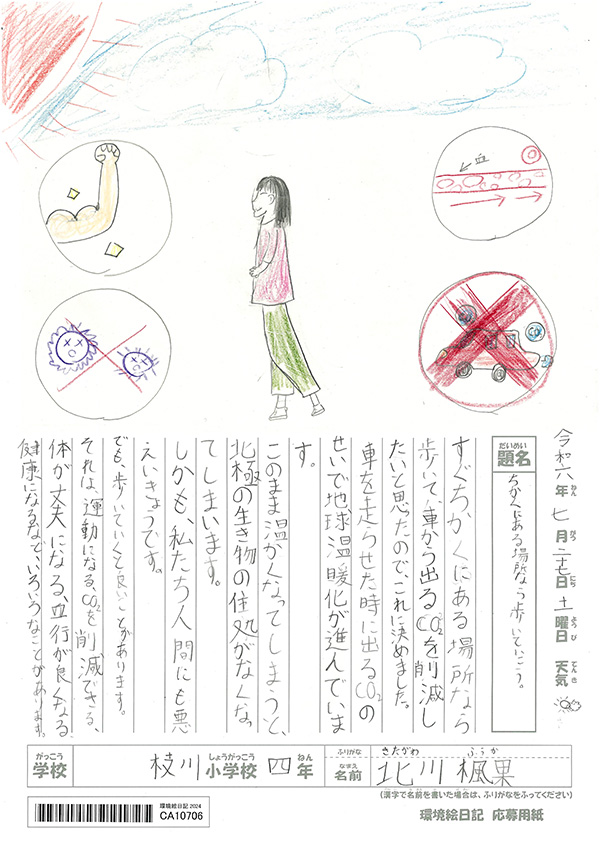 血
CO2
CO2
令和六年ねん七月がつ二十七日にち土曜日ようび天気てんき
だいめい
題名
ちかくにある場所なら歩いていこう。
すぐちかくにある場所なら
歩いて、車から出るCO2を削減し
たいと思ったので、これに決めました。
車を走らせた時に出るCO2の
せいで地球温暖化が進んでいま
す。
このまま温かくなってしまうと、
北極の生き物の住処がなくなっ
てしまいます。
しかも、私たち人間にも悪
えいきょうです。
でも、歩いていくと良いことがあります。
それは、運動になる、CO2を削減できる、
体が丈夫になる、血行が良くなる、
健康になるなどいろいろなことがあります。
がっこう
学校
枝川小学校しょうがっこう四年ねん
ふりがな
きたがわ ふうか
なまえ
名前
北川楓果
(漢字で名前を書いた場合は、ふりがなをふってください)
環境絵日記 2024
CA10706
環境絵日記 応募用紙